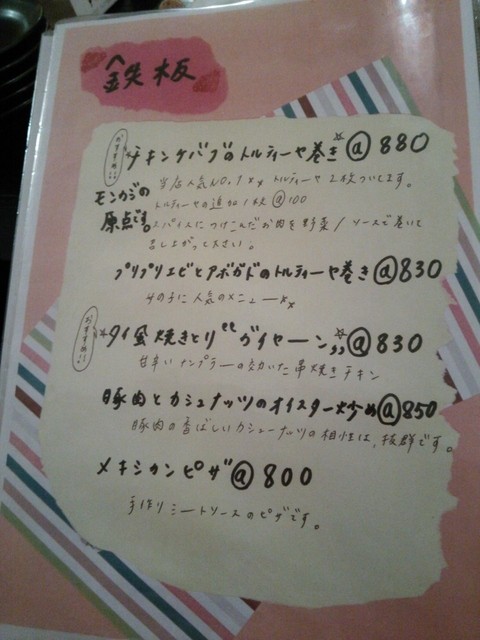 鉄板
おすすめ!!
チキンケバブのトルティーヤ巻き @880
当店人気NO.1 トルティーヤ2枚ついてます。
モンカジの原点です。
トルティーヤの追加1枚 @100
スパイスにつけこんだお肉を野菜/ソースで巻いて
召し上がって下さい。
プリプリエビとアボガドのトルティーヤ巻き @830
女の子に人気のメニュー
おすすめ!!
タイ風焼きとり"ガイヤーン" @830
甘辛いナンプラーの効いた串焼きチキン
豚肉とカシュナッツのオイスター炒め @850
豚肉の香ばしいカシューナッツの相性は、抜群です。
メキシカンピザ @800
手作りミートソースのピザです。